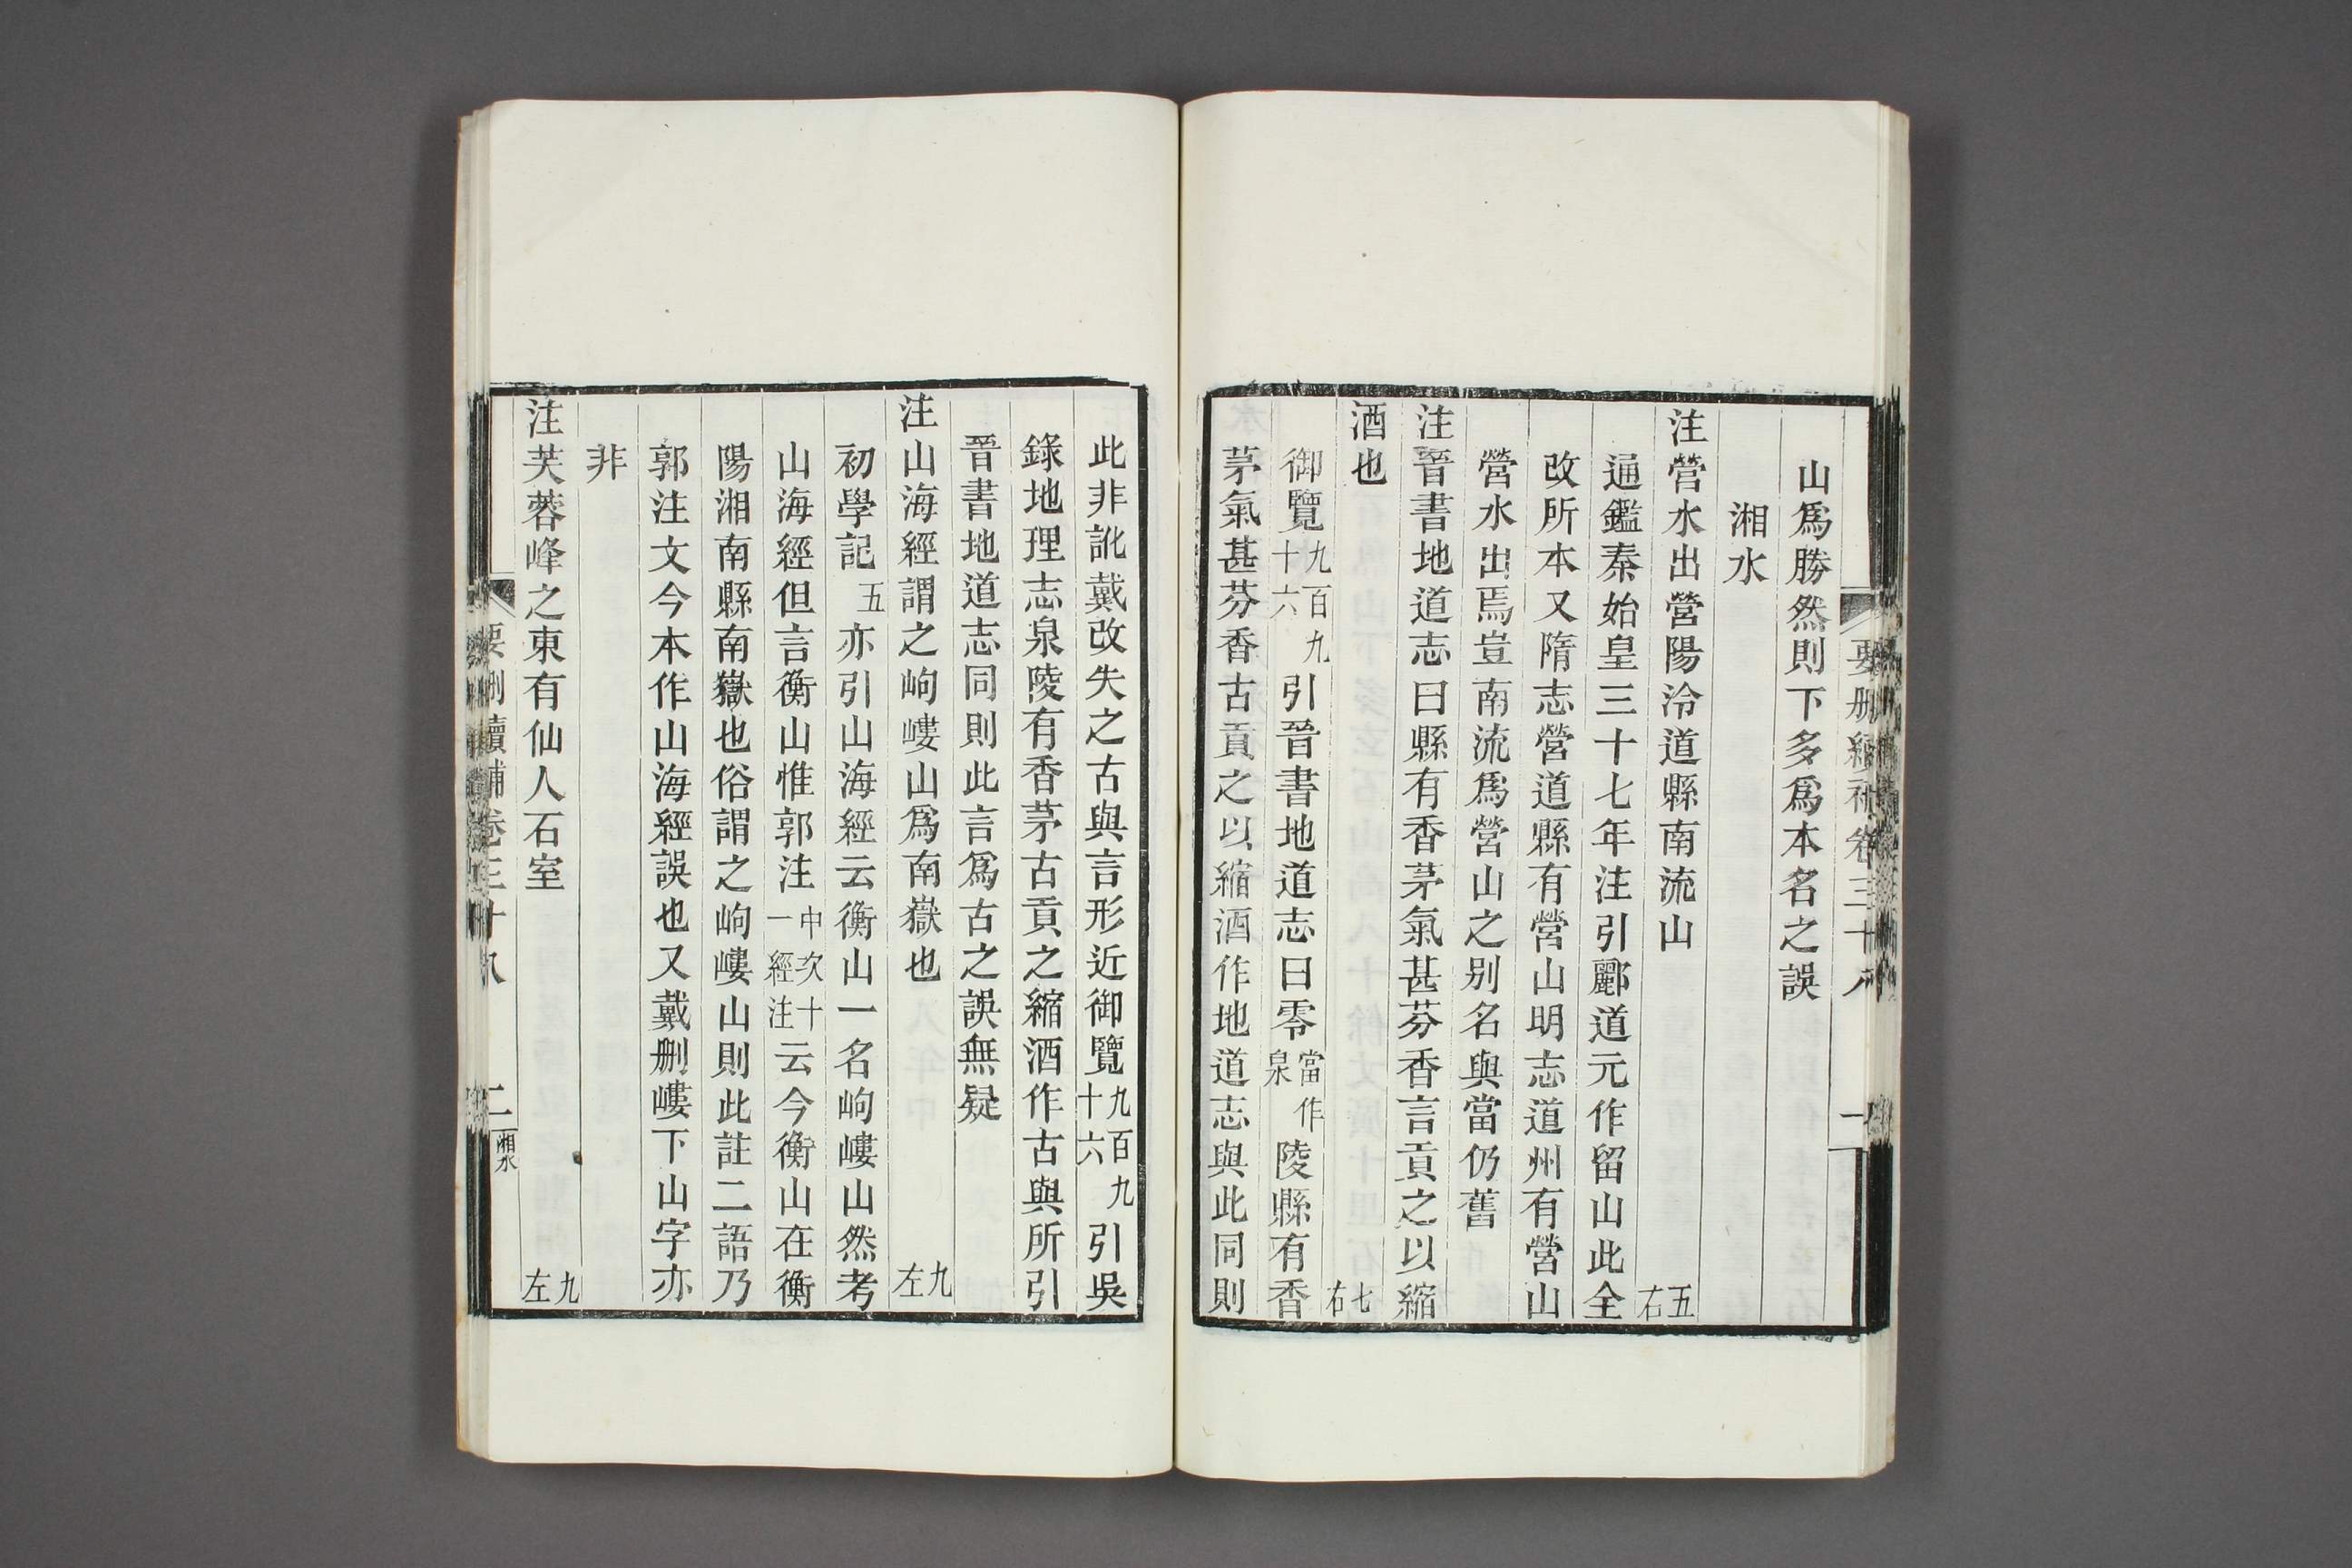 要刪續補卷三十八
一
山爲勝然則下多爲本名之誤
湘水
注營水出營陽泠道縣南流山五右
通鑑秦始皇三十七年注引酈道元作留山此全
改所本又隋志營道縣有營山明志道州有營山
營水出焉豈南流爲營山之别名與當仍舊
注晉書地道志曰縣有香茅氣甚芬香言貢之以縮
酒也七右
御覽九百九十六九引晉書地道志曰零當作泉陵縣有香
茅氣甚芬香古貢之以縮酒作地道志與此同則
此非訛戴改失之古與言形近御覽九百九十六九引吳
錄地理志泉陵有香茅古貢之縮酒作古與所引
晉書地道志同則此言爲古之誤無疑
注山海經謂之岣嶁山爲南嶽也九左
初學記五亦引山海經云衡山一名岣嶁山然考
山海經但言衡山惟郭注中次十一經注云今衡山在衡
陽湘南縣南嶽也俗謂之岣嶁山則此註二語乃
郭注文今本作山海經誤也又戴刪嶁下山字亦
非
注芙蓉峰之東有仙人石室九左
要刪續補卷三十八
二
湘水